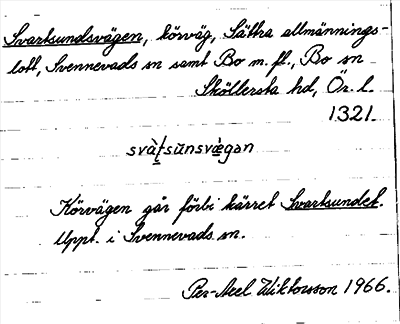 Svartsundsvägen, körväg, Sättra allmännings-
lott, Svennevads sn samt Bo m. fl., Bo sn
Sköllersta hd, Ör. l.
1321.
svàt̯sūnsvægan
Körvägen går förbi kärret Svartsundet.
Uppt. i Svennevads sn.
Per-Axel Wiktorsson 1966.